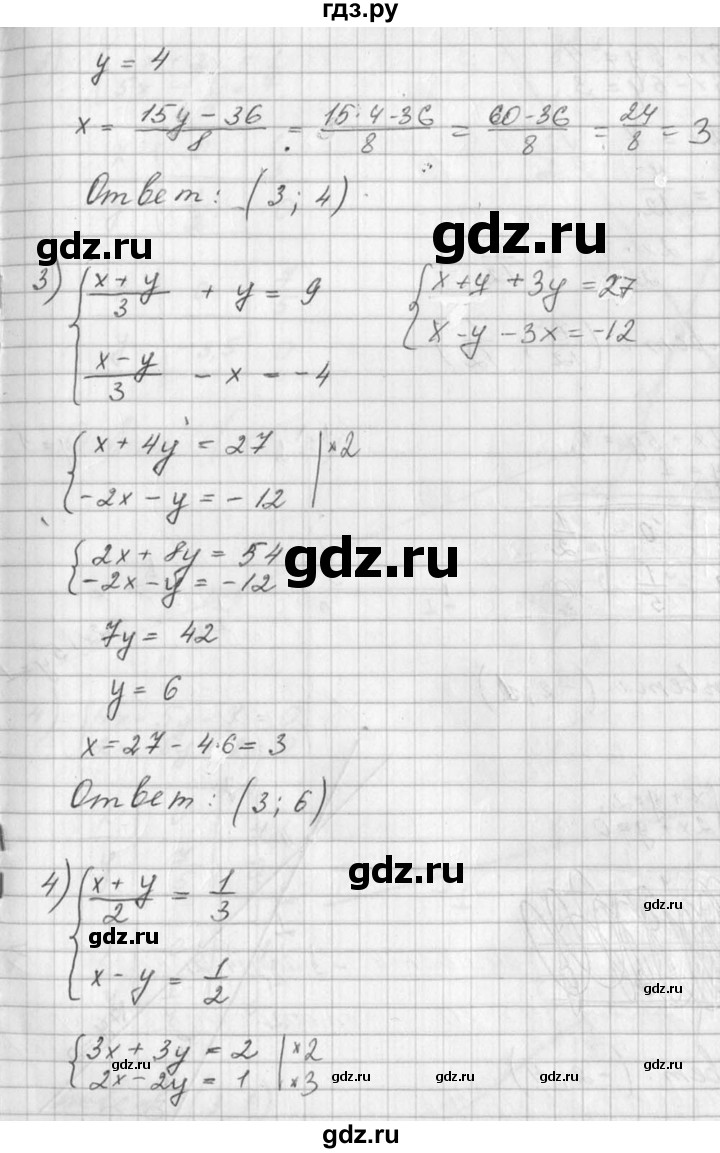 гдз.ру
y = 4
x = (15y - 36)/8 = (15·4 - 36)/8 = (60 - 36)/8 = 24/8 = 3
Ответ: (3; 4)
gdz.ru gdz.ru
3) { (x + y)/3 + y = 9 { x + y + 3y = 27
(x - y)/3 - x = -4 x - y - 3x = -12
{ x + 4y = 27 | ×2
-2x - y = -12
{ 2x + 8y = 54
-2x - y = -12
gdz.ru
7y = 42
y = 6
x = 27 - 4·6 = 3
Ответ: (3; 6)
4) { (x + y)/2 = 1/3
gdz.ru
gdz.ru
gdz.ru
x - y = 1/2
gdz.ru
{ 3x + 3y = 2 | ×2
2x - 2y = 1 | ×3
gdz.ru gdz.ru gdz.ru gdz.ru gdz.ru
gdz.ru